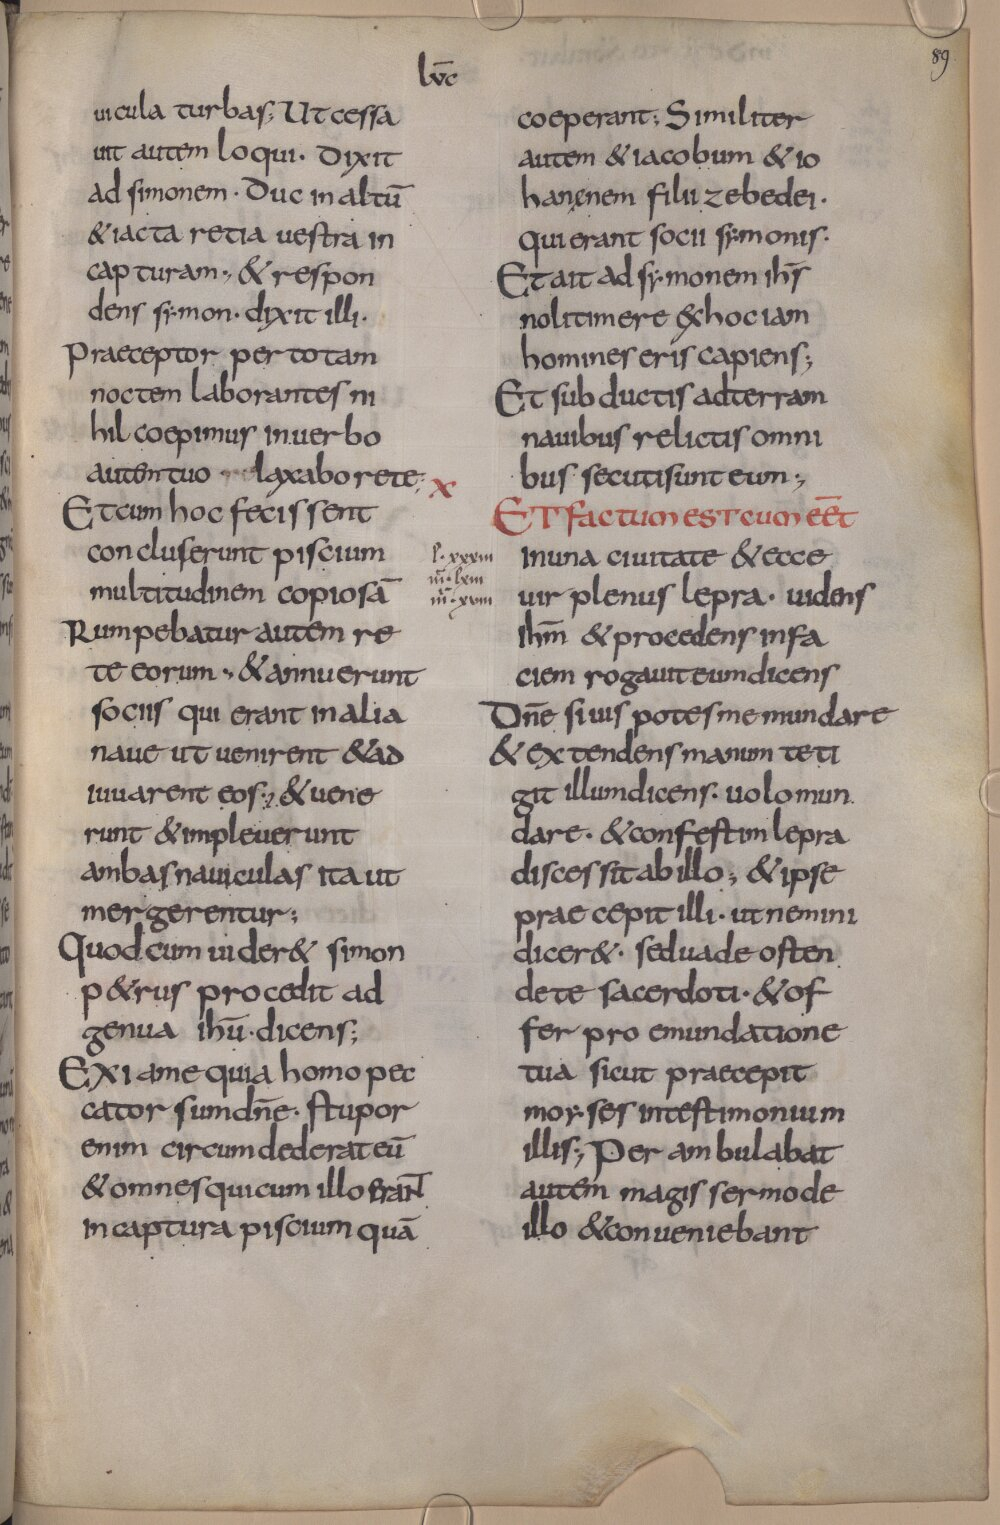 lvc̄
89
uicula turbas; Ut cessa
uit autem loqui. Dixit
ad simonem. Duc in altū
& iacta retia uestra in
capturam; & respon
dens symon. dixit illi.
Praeceptor per totam
noctem laborantes ni
hil coepimus in uerbo
autem tuo laxabo rete;
Et cum hoc fecissent
concluserunt piscium
multitudinem copiosā
Rumpebatur autem re
te eorum; & annuerunt
sociis qui erant in alia
naue ut uenirent & ad
iuuarent eos; & uene
runt & impleuerunt
ambas nauiculas ita ut
mergerentur;
Quod cum uider& simon
p&rus procedit ad
genua ihū. dicens;
Exi a me quia homo pec
cator sum dn̄e. stupor
enim circumdederat eū
& omnes qui cum illo erant
in captura piscium quā
coeperant; Similiter
autem & iacobum & io
hannem filii zebedei.
qui erant socii symonis.
Et ait ad symonem ihs̄
noli timere ex hoc iam
homines eris capiens;
Et subductis ad terram
nauibus relictis omni
bus secuti sunt eum;
X
Et factum est cum eēt
l. xxxiii
m̄. lxiii
m̄. xviii
in una ciuitate & ecce
uir plenus lepra. uidens
ihm̄ & procedens in fa
ciem rogauit eum dicens
Dn̄e si uis potes me mundare
& extendens manum teti
git illum dicens. uolo mun
dare. & confestim lepra
discessit ab illo; & ipse
praecepit illi. ut nemini
dicer&. sed uade osten
de te sacerdoti. & of
fer pro emundatione
tua sicut praecepit
moyses in testimonium
illis; Perambulabat
autem magis sermo de
illo & conueniebant